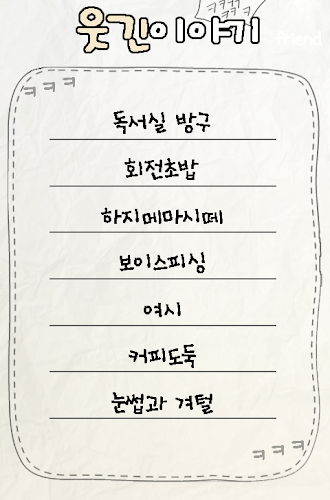 ㅋㅋㅋ
ㅋㅋㅋ
웃긴이야기
friend
ㅋㅋㅋ
독서실 방구
회전초밥
하지메마시떼
보이스피싱
여시
커피도둑
눈썹과 겨털
ㅋㅋㅋ